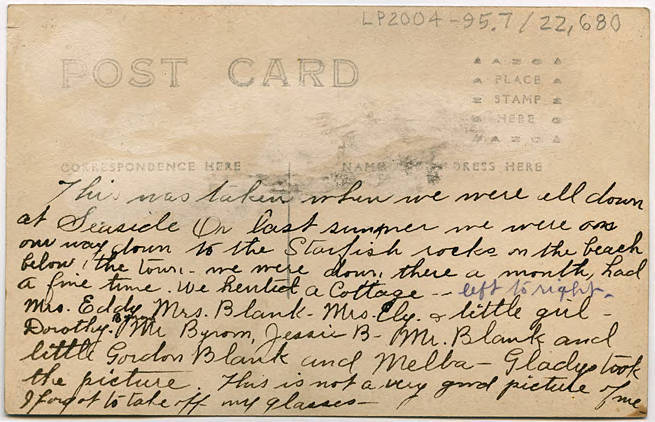 LP2004-95.7/22,680
POST CARD
AZOA
PLACE
STAMP
HERE
AZOA
CORRESPONDENCE HERE
NAME DRESS HERE
This was taken when we were all down
at Seaside Or last summer we were on
our way down to the Starfish rocks on the beach
below the town - we were down there a month, had
a fine time. We Rented a Cottage -- left to right -
Mrs. Eddy Mrs. Blank - Mrs. Ely. & little girl -
Byrom
Dorothy. Mr Byrom, Jessie B - Mr. Blank and
little Gordon Blank and Melba - Gladys took
the picture. This is not a very good picture of me
I forgot to take off my glasses -